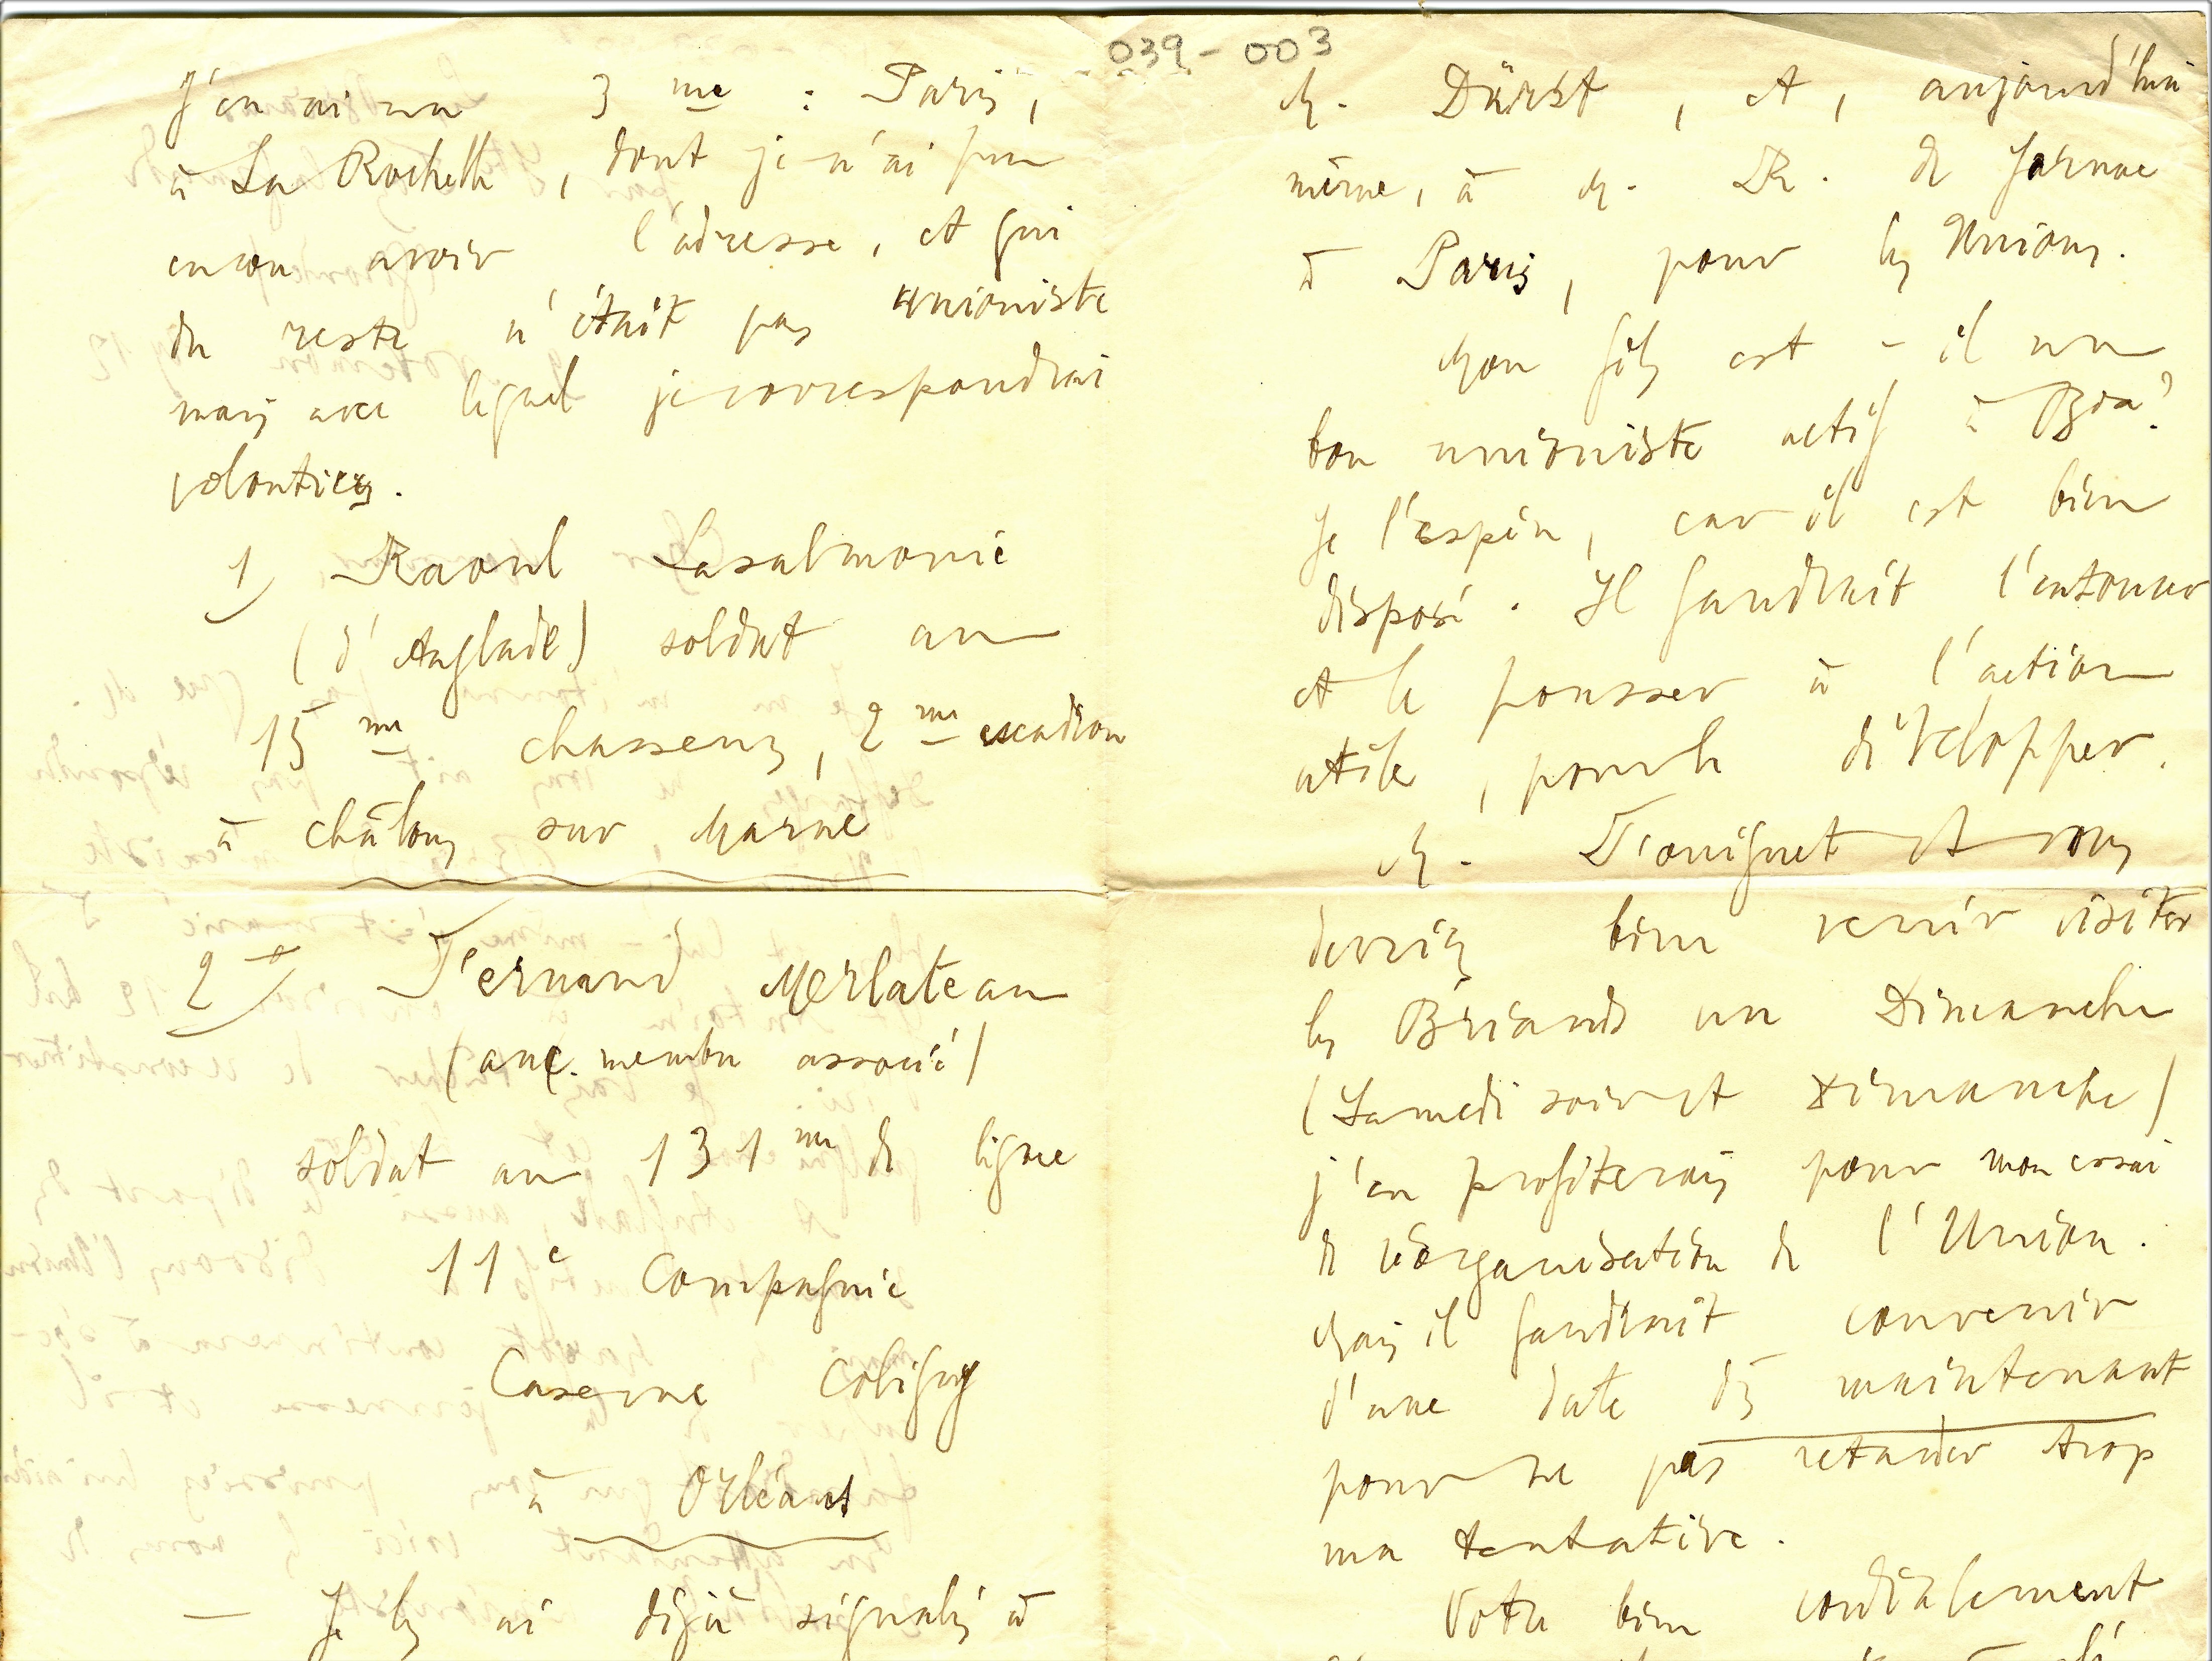 039-003
J'en ai un 3me : Paris,
à La Rochelle, dont je n'ai pu
encore avoir l'adresse, et qui
du reste n'était pas unioniste
mais avec lequel je correspondrai
volontiers.
1) Raoul Lasalmonie
(d'Anglade) soldat au
15me chasseurs, 2me escadron
à Châlons sur Marne
2) Fernand Merlateau
(anc. membre associé)
soldat au 131me de ligne
11e Compagnie
Caserne Coligny
à Orléans
— Je les ai déjà signalés à
M. Dürst, et, aujourd'hui
même, à M. R. de Jarnac
à Paris, pour les Unions.
Mon fils est-il un
bon unioniste actif à Bx?
Je l'espère, car il est bien
disposé. Il faudrait l'entourer
et le pousser à l'action
utile, pour le développer.
M. et vous
devriez bien venir visiter
les Briands un Dimanche
(Samedi soir et Dimanche)
j'en profiterais pour mon essai
de réorganisation de l'Union.
Mais il faudrait convenir
d'une date dès maintenant
pour ne pas retarder trop
ma tentative.
Votre bien cordialement